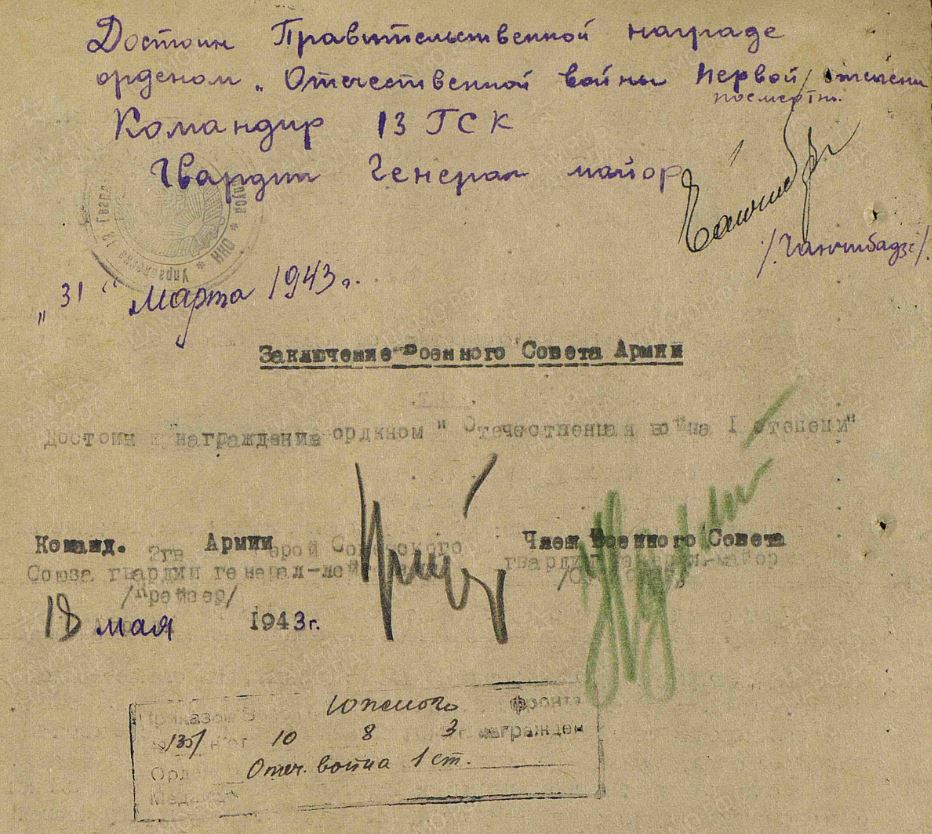 Достоин Правительственной награде
орденом „Отечественной войны Первой степени
посмертно.
Командир 13 ГСК
Гвардии Генерал майор
/Чанчибадзе/.
„31“ марта 1943 г.
Заключение Военного Совета Армии
Достоин к награждению орденом "Отечественная война I степени"
Команд. 2гв Армии Член Военного Совета
Союза гвардии генерал-лей гвардии майор
/Крейзер/
18 мая 1943г.
Приказом Южного фронта
от 10 8 3 награжден
Отеч. война 1 ст.